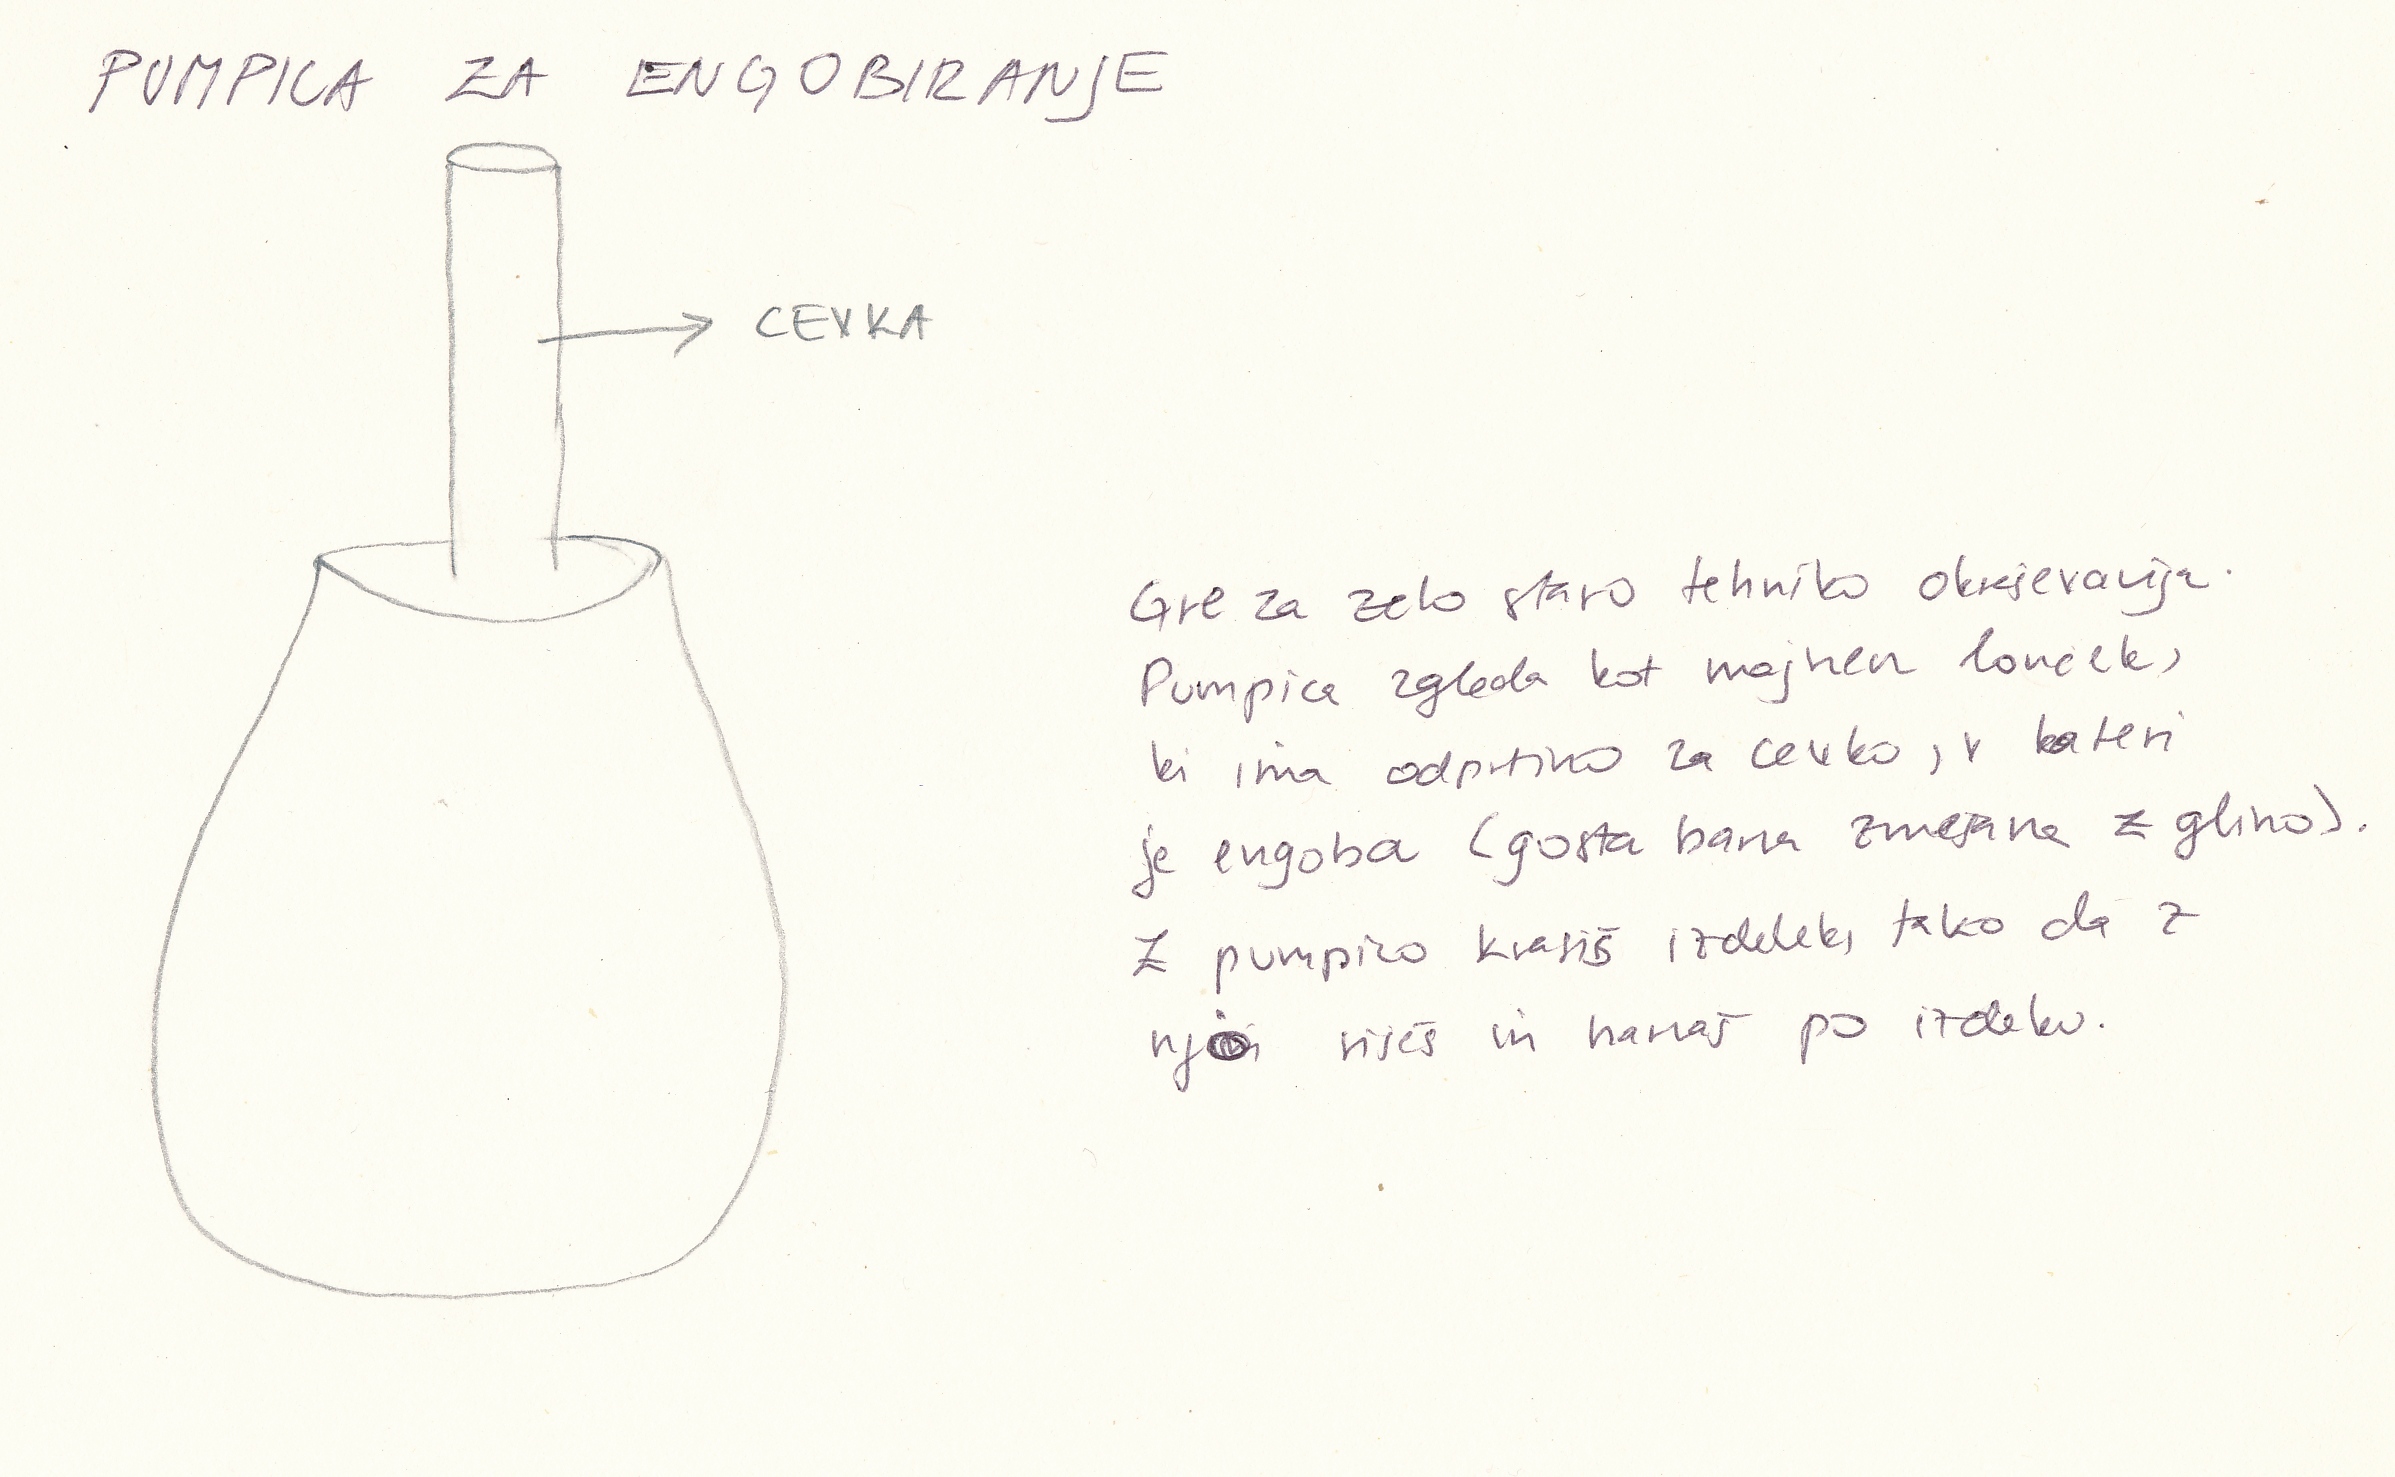 PUMPICA ZA ENGOBIRANJE
CEVKA
Gre za zelo staro tehniko okraševanja.
Pumpica zgleda kot majhen lonček,
ki ima odprtino za cevko, v kateri
je engoba (gosta barva zmešana z glino).
Z pumpico krasiš izdelek, tako da z
njo rišeš in nanaš po izdelku.